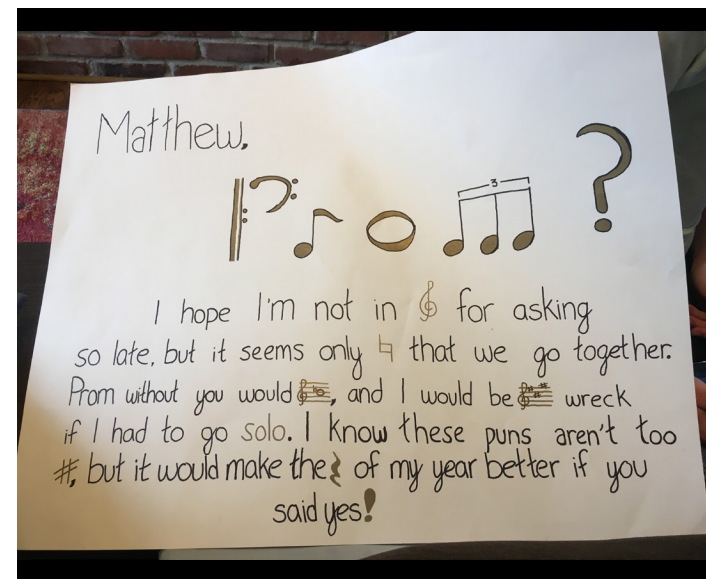 Matthew,
PROM?
3
I hope I'm not in 𝄞 for asking
so late, but it seems only ♮ that we go together.
Prom without you would , and I would be wreck
if I had to go solo. I know these puns aren't too
#, but it would make the 𝄽 of my year better if you
said yes!